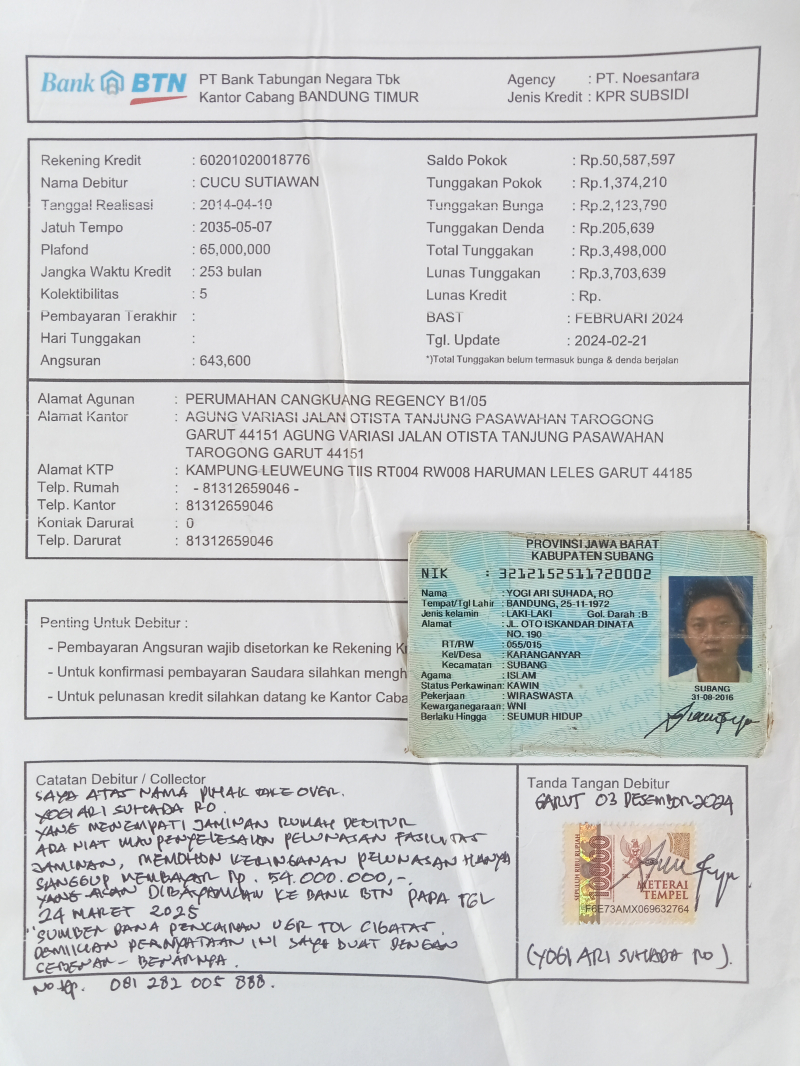 Bank BTN
PT Bank Tabungan Negara Tbk
Kantor Cabang BANDUNG TIMUR
Agency : PT. Noesantara
Jenis Kredit : KPR SUBSIDI
Rekening Kredit : 60201020018776
Nama Debitur : CUCU SUTIAWAN
Tanggal Realisasi : 2014-04-10
Jatuh Tempo : 2035-05-07
Plafond : 65,000,000
Jangka Waktu Kredit : 253 bulan
Kolektibilitas : 5
Pembayaran Terakhir :
Hari Tunggakan :
Angsuran : 643,600
Saldo Pokok : Rp.50,587,597
Tunggakan Pokok : Rp.1,374,210
Tunggakan Bunga : Rp.2,123,790
Tunggakan Denda : Rp.205,639
Total Tunggakan : Rp.3,498,000
Lunas Tunggakan : Rp.3,703,639
Lunas Kredit : Rp.
BAST : FEBRUARI 2024
Tgl. Update : 2024-02-21
*)Total Tunggakan belum termasuk bunga & denda berjalan
Alamat Agunan : PERUMAHAN CANGKUANG REGENCY B1/05
Alamat Kantor : AGUNG VARIASI JALAN OTISTA TANJUNG PASAWAHAN TAROGONG
GARUT 44151 AGUNG VARIASI JALAN OTISTA TANJUNG PASAWAHAN
TAROGONG GARUT 44151
Alamat KTP : KAMPUNG LEUWEUNG TIIS RT004 RW008 HARUMAN LELES GARUT 44185
Telp. Rumah : - 81312659046 -
Telp. Kantor : 81312659046
Kontak Darurat : 0
Telp. Darurat : 81312659046
PROVINSI JAWA BARAT
KABUPATEN SUBANG
NIK : 3212152511720002
Nama : YOGI ARI SUHADA, RO
Tempat/Tgl Lahir : BANDUNG, 25-11-1972
Jenis kelamin : LAKI-LAKI Gol. Darah :B
Alamat : JL. OTO ISKANDAR DINATA
NO. 190
RT/RW : 055/015
Kel/Desa : KARANGANYAR
Kecamatan : SUBANG
Agama : ISLAM
Status Perkawinan: KAWIN
Pekerjaan : WIRASWASTA
Kewarganegaraan: WNI
Berlaku Hingga : SEUMUR HIDUP
SUBANG
31-08-2016
Penting Untuk Debitur :
- Pembayaran Angsuran wajib disetorkan ke Rekening
- Untuk konfirmasi pembayaran Saudara silahkan
- Untuk pelunasan kredit silahkan datang ke Kantor
Catatan Debitur / Collector
SAYA ATAS NAMA PIHAK TAKE OVER.
YOGI ARI SUHADA RO.
YANG MENEMPATI JAMINAN RUMAH DEBITUR
ADA NIAT MAU PENYELESAIAN PELUNASAN FASILITAS
JAMINAN, MEMOHON KERINGANAN PELUNASAN HANYA
SANGGUP MEMBAYAR RP. 54.000.000,-
YANG AKAN DIBAYARKAN KE BANK BTN PADA TGL
24 MARET 2025
"SUMBER DANA PENCAIRAN UGR TOL CIGATAS.
DEMIKIAN PERNYATAAN INI SAYA BUAT DENGAN
SEBENAR - BENARNYA.
No tlp. 081 282 005 888.
Tanda Tangan Debitur
GARUT 03 DESEMBER 2024
SEPULUH RIBU RUPIAH
10000
METERAI
TEMPEL
F6E73AMX069632764
(YOGI ARI SUHADA RO).